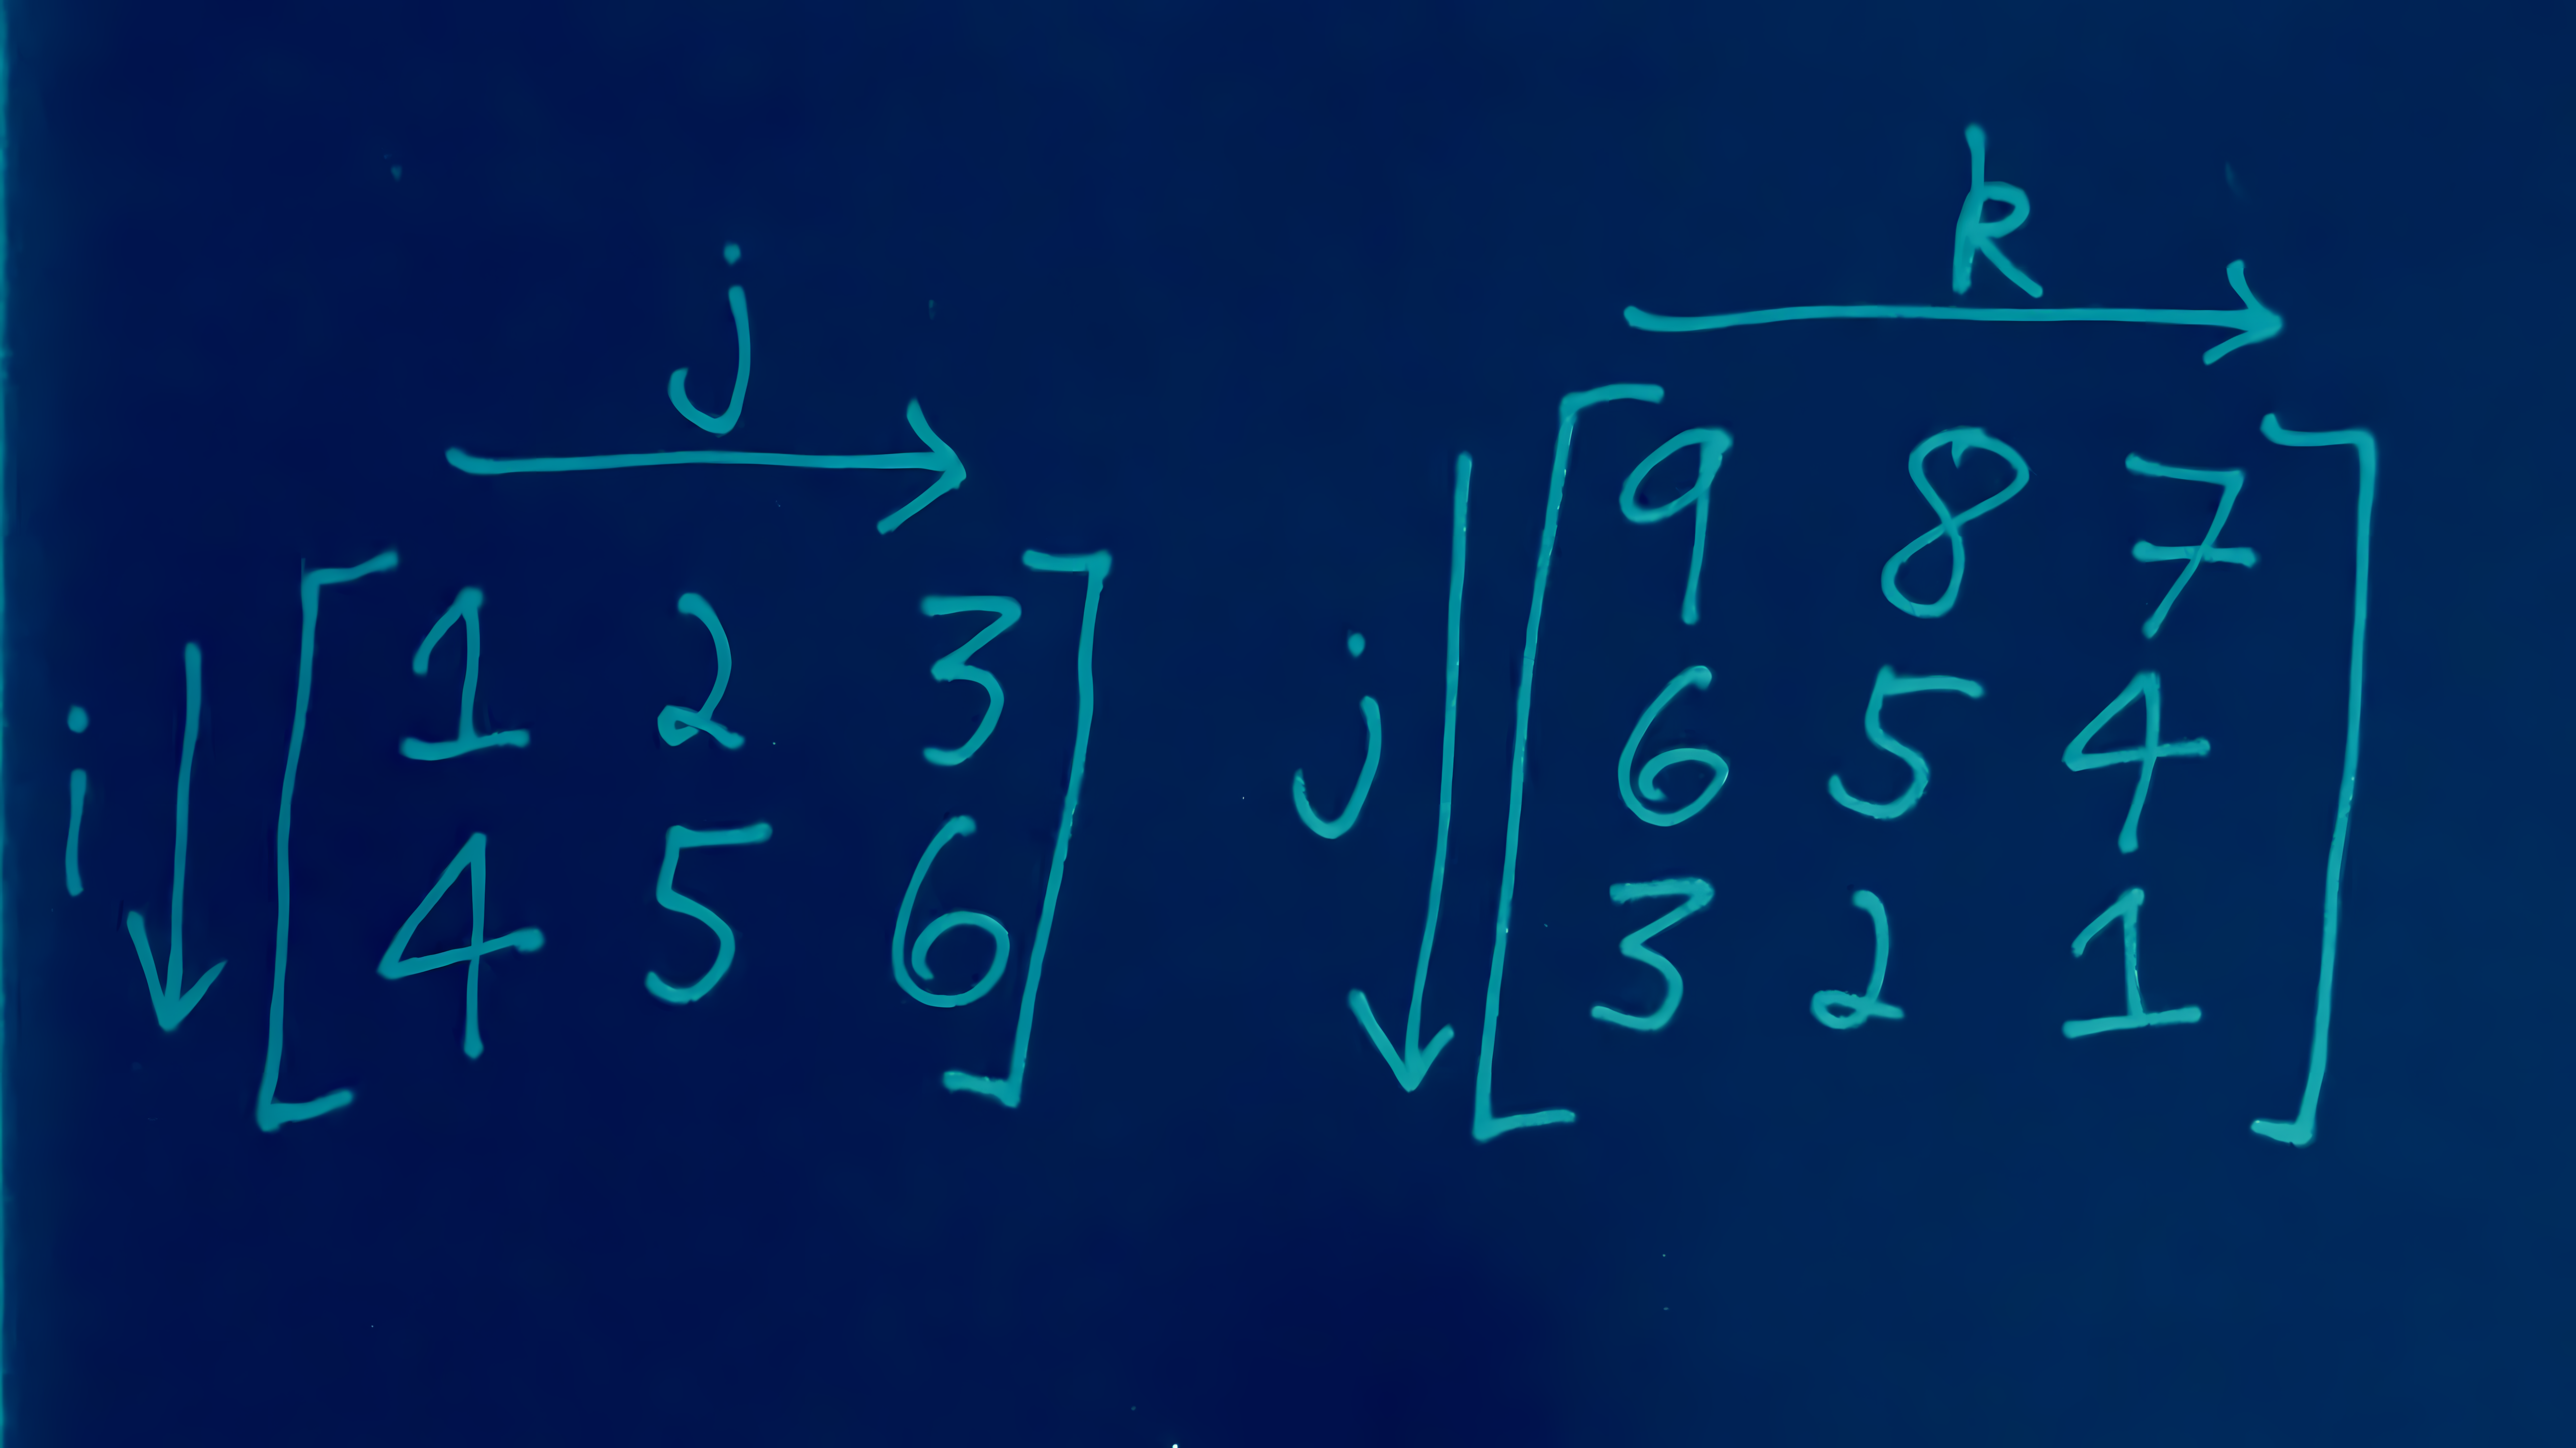 j
i
1 2 3
4 5 6
k
j
9 8 7
6 5 4
3 2 1